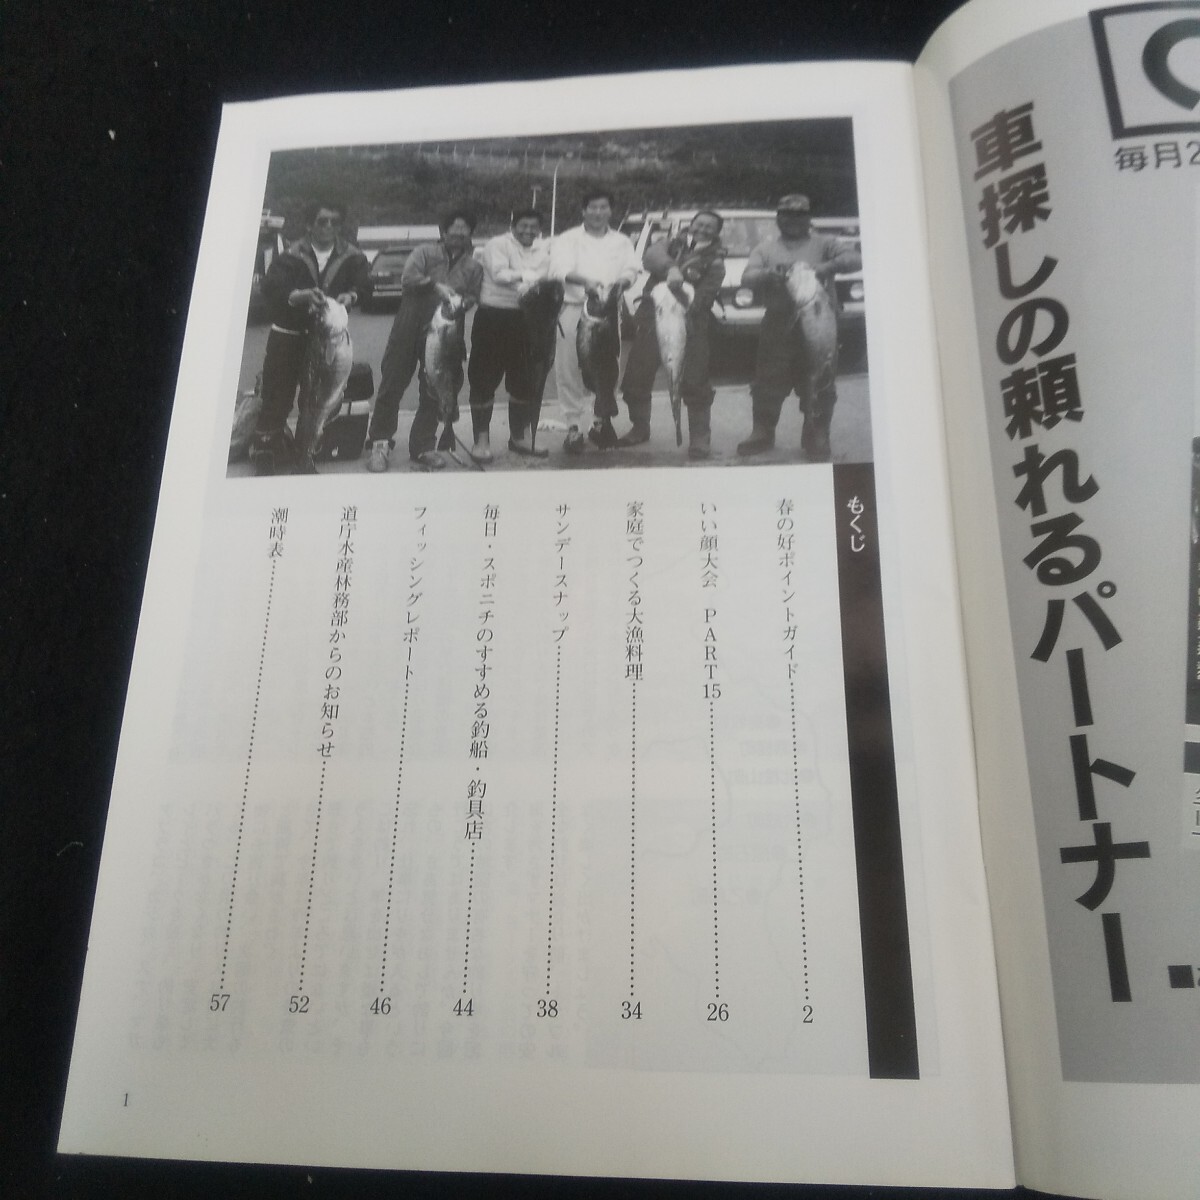 もくじ
春の好ポイントガイド……2
いい顔大会　PART15……26
家庭でつくる大漁料理……34
サンデースナップ……38
毎日・スポニチのすすめる釣船・釣具店……44
フィッシングレポート……46
道庁水産林務部からのお知らせ……52
潮時表……57
1
毎月2
車探しの頼れるパートナー